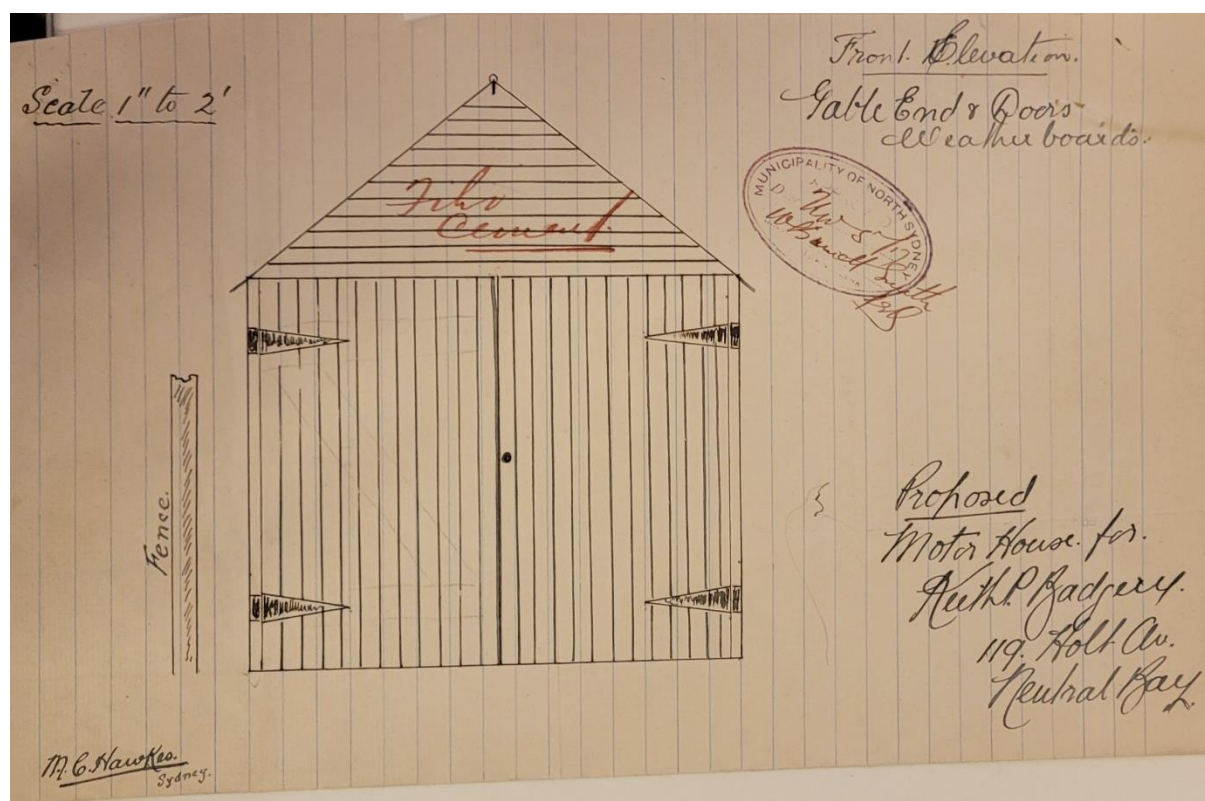 Scale 1" to 2'
Front Elevation.
Gable End & Doors
Weatherboards.
MUNICIPALITY OF NORTH SYDNEY
Fibro
Cement
Fence.
Proposed
Motor House for.
Keith P. Badgery.
119. Holt Av.
Neutral Bay
M. C. Hawkes.
Sydney.